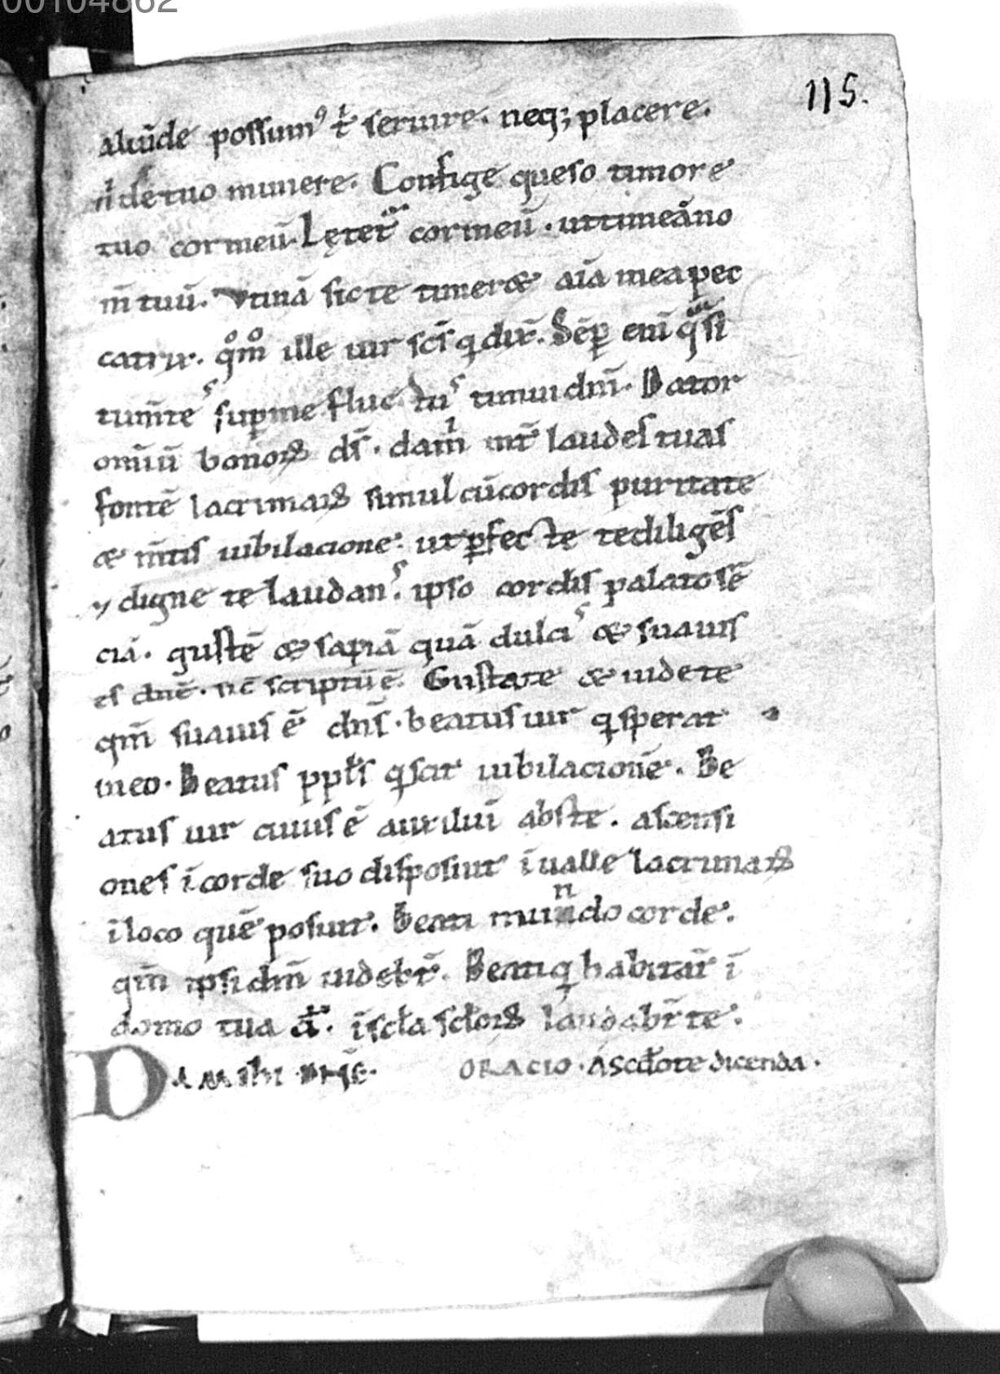 00104862
115.
aliūde possumꝰ t̄ seruire. neq; placere.
n̄ de tuo munere. Confige queso timore
tuo cor meū. Lęteť cor meū. ut timeā no
m̄ tuū. Vtinā sic te timeræ aīa mea pec
catrix. qͦmͦ ille uir scs̄ q dix̄. Sēp enī qͣsi
tum̄te sup me fluc tuˢ timui dm̄. Dator
omīū bonoꝝ ds̄. da m̄ int̄ laudes tuas
fontē lacrimaꝝ simul cū cordis puritate
æ m̄tis iubilacione. ut pfec te te diligēs
⁊ digne te laudanˢ. ipso cordis palato sē
ciā. gustē æ sapiā quā dulciˢ æ suauis
es dn̄e. uc̄ scriptū ē. Gustate æ uidete
qm̄ suauis ē dn̄s. beatus uir q sperat
in eo. Beatus ppl̄s q scit iubilacionē. Be
atus uir cuius ē auxiliū abs te. ascensi
ones ī corde suo disposuit ī ualle lacrimaꝝ
ī loco quē posuit. Beati mundo corde.
qm̄ ipsi dm̄ uidebt̄. Beati q habitant̄ ī
domo tua dn̄. ī scl̄a scl̄oꝝ laudabt̄ te.
DA mihi dn̄e. ORACIO. A Scd̄ote dicenda.